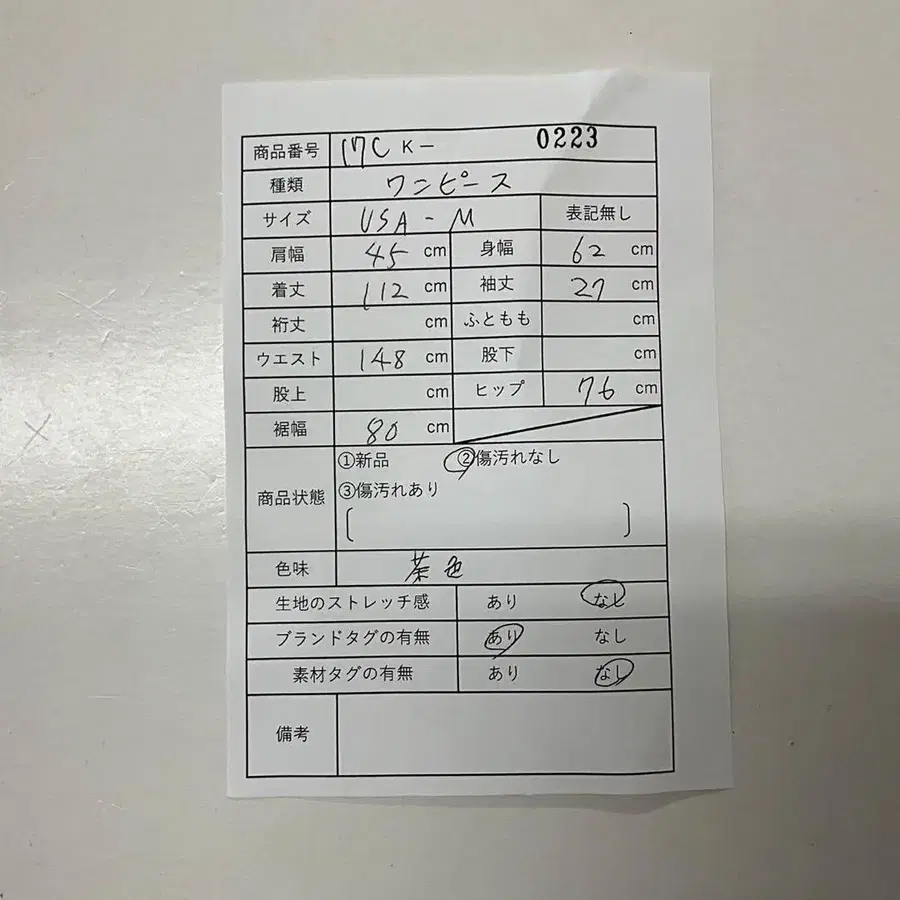 商品番号 17C K- 0223
種類 ワンピース
サイズ USA-M 表記無し
肩幅 45 cm 身幅 62 cm
着丈 112 cm 袖丈 27 cm
裄丈 cm ふともも cm
ウエスト 148 cm 股下 cm
股上 cm ヒップ 76 cm
裾幅 80 cm
①新品 ②傷汚れなし
商品状態 ③傷汚れあり
[ ]
色味 茶色
生地のストレッチ感 あり なし
ブランドタグの有無 あり なし
素材タグの有無 あり なし
備考